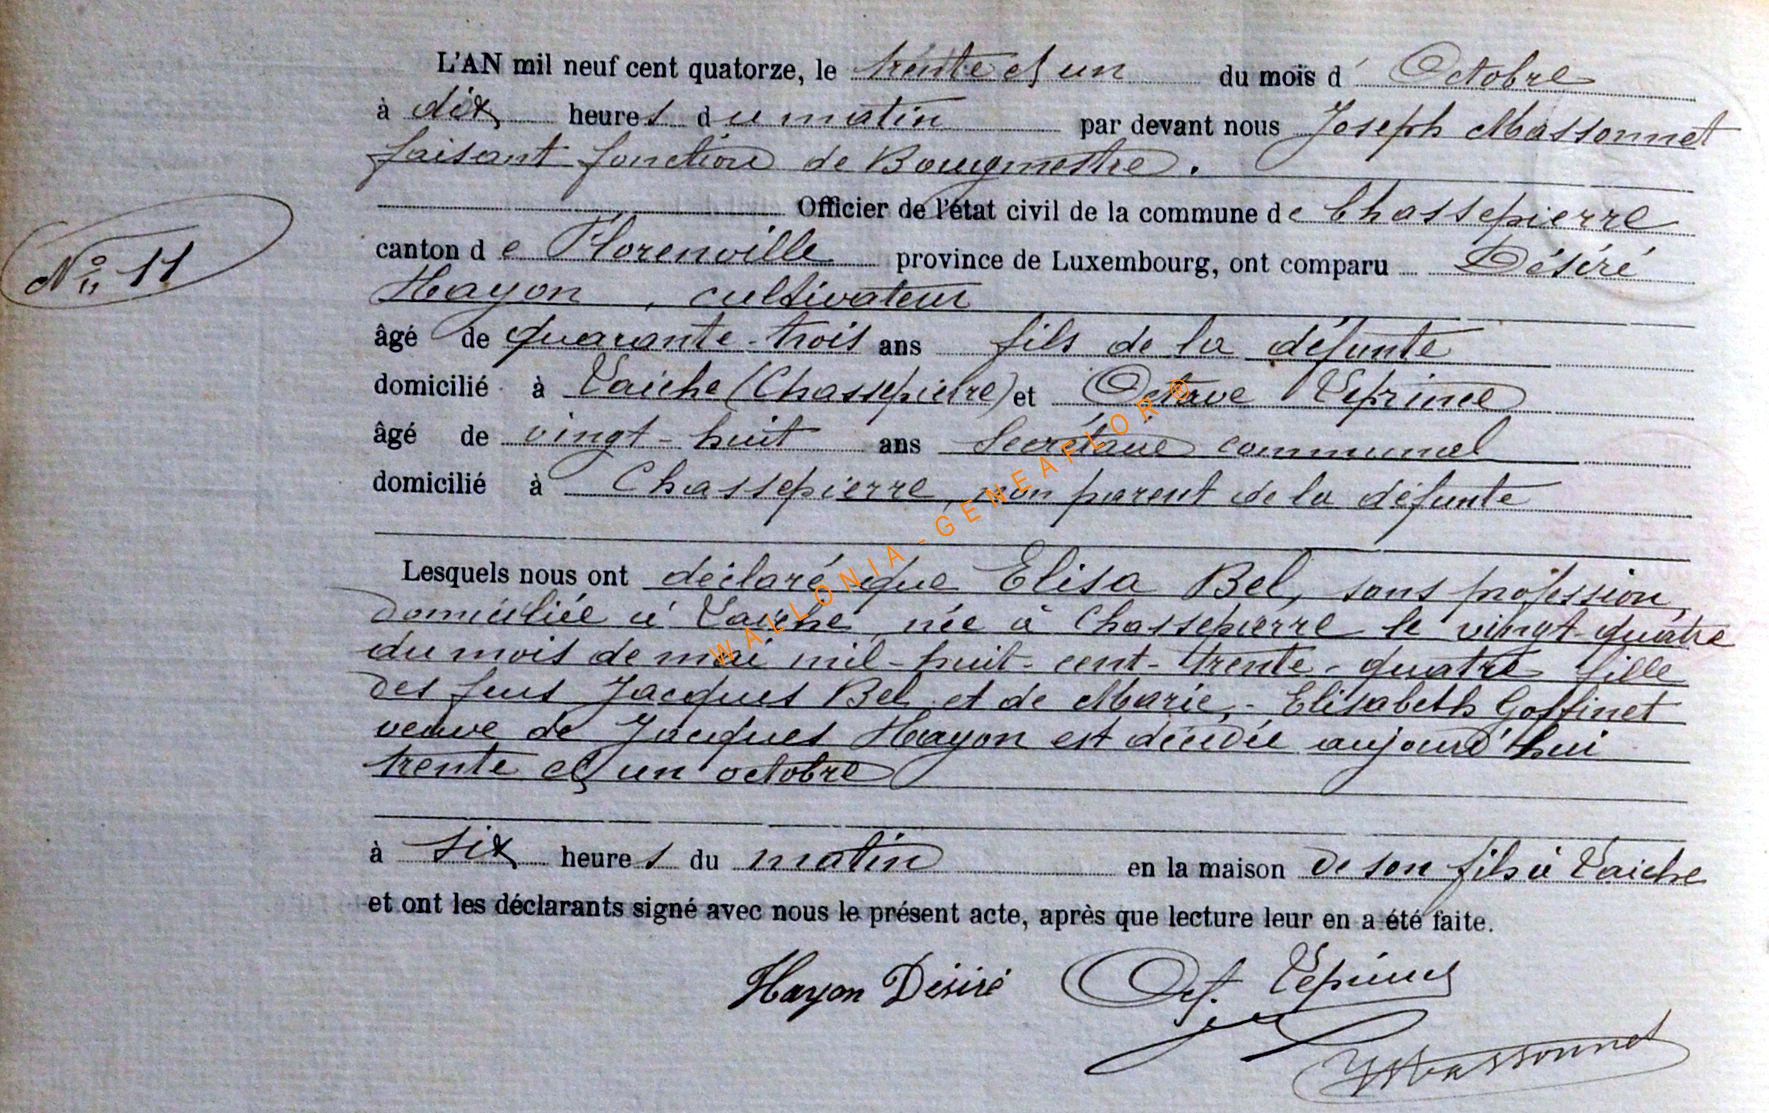 L'AN mil neuf cent quatorze, le trente et un du mois d' Octobre
à dix heures du matin par devant nous Joseph Massonnet
faisant fonction de Bourgmestre.
Officier de l'état civil de la commune de Chassepierre
N° 11
canton de Florenville province de Luxembourg, ont comparu Désiré
Hayon, cultivateur
âgé de quarante-trois ans fils de la défunte
domicilié à Laiche (Chassepierre) et Octave Leprince
âgé de vingt-huit ans Secrétaire communal
domicilié à Chassepierre, non parent de la défunte
Lesquels nous ont déclaré que Elisa Bel, sans profession,
domiciliée à Laiche, née à Chassepierre le vingt-quatre
du mois de mai mil-huit-cent-trente-quatre fille
des feus Jacques Bel et de Marie-Elisabeth Goffinet
veuve de Jacques Hayon est décédée aujourd'hui
trente et un octobre
à six heures du matin en la maison de son fils à Laiche
et ont les déclarants signé avec nous le présent acte, après que lecture leur en a été faite.
Hayon Désiré Oct. Leprince
J Massonnet
WALLONIA - GENEAFLOR ®